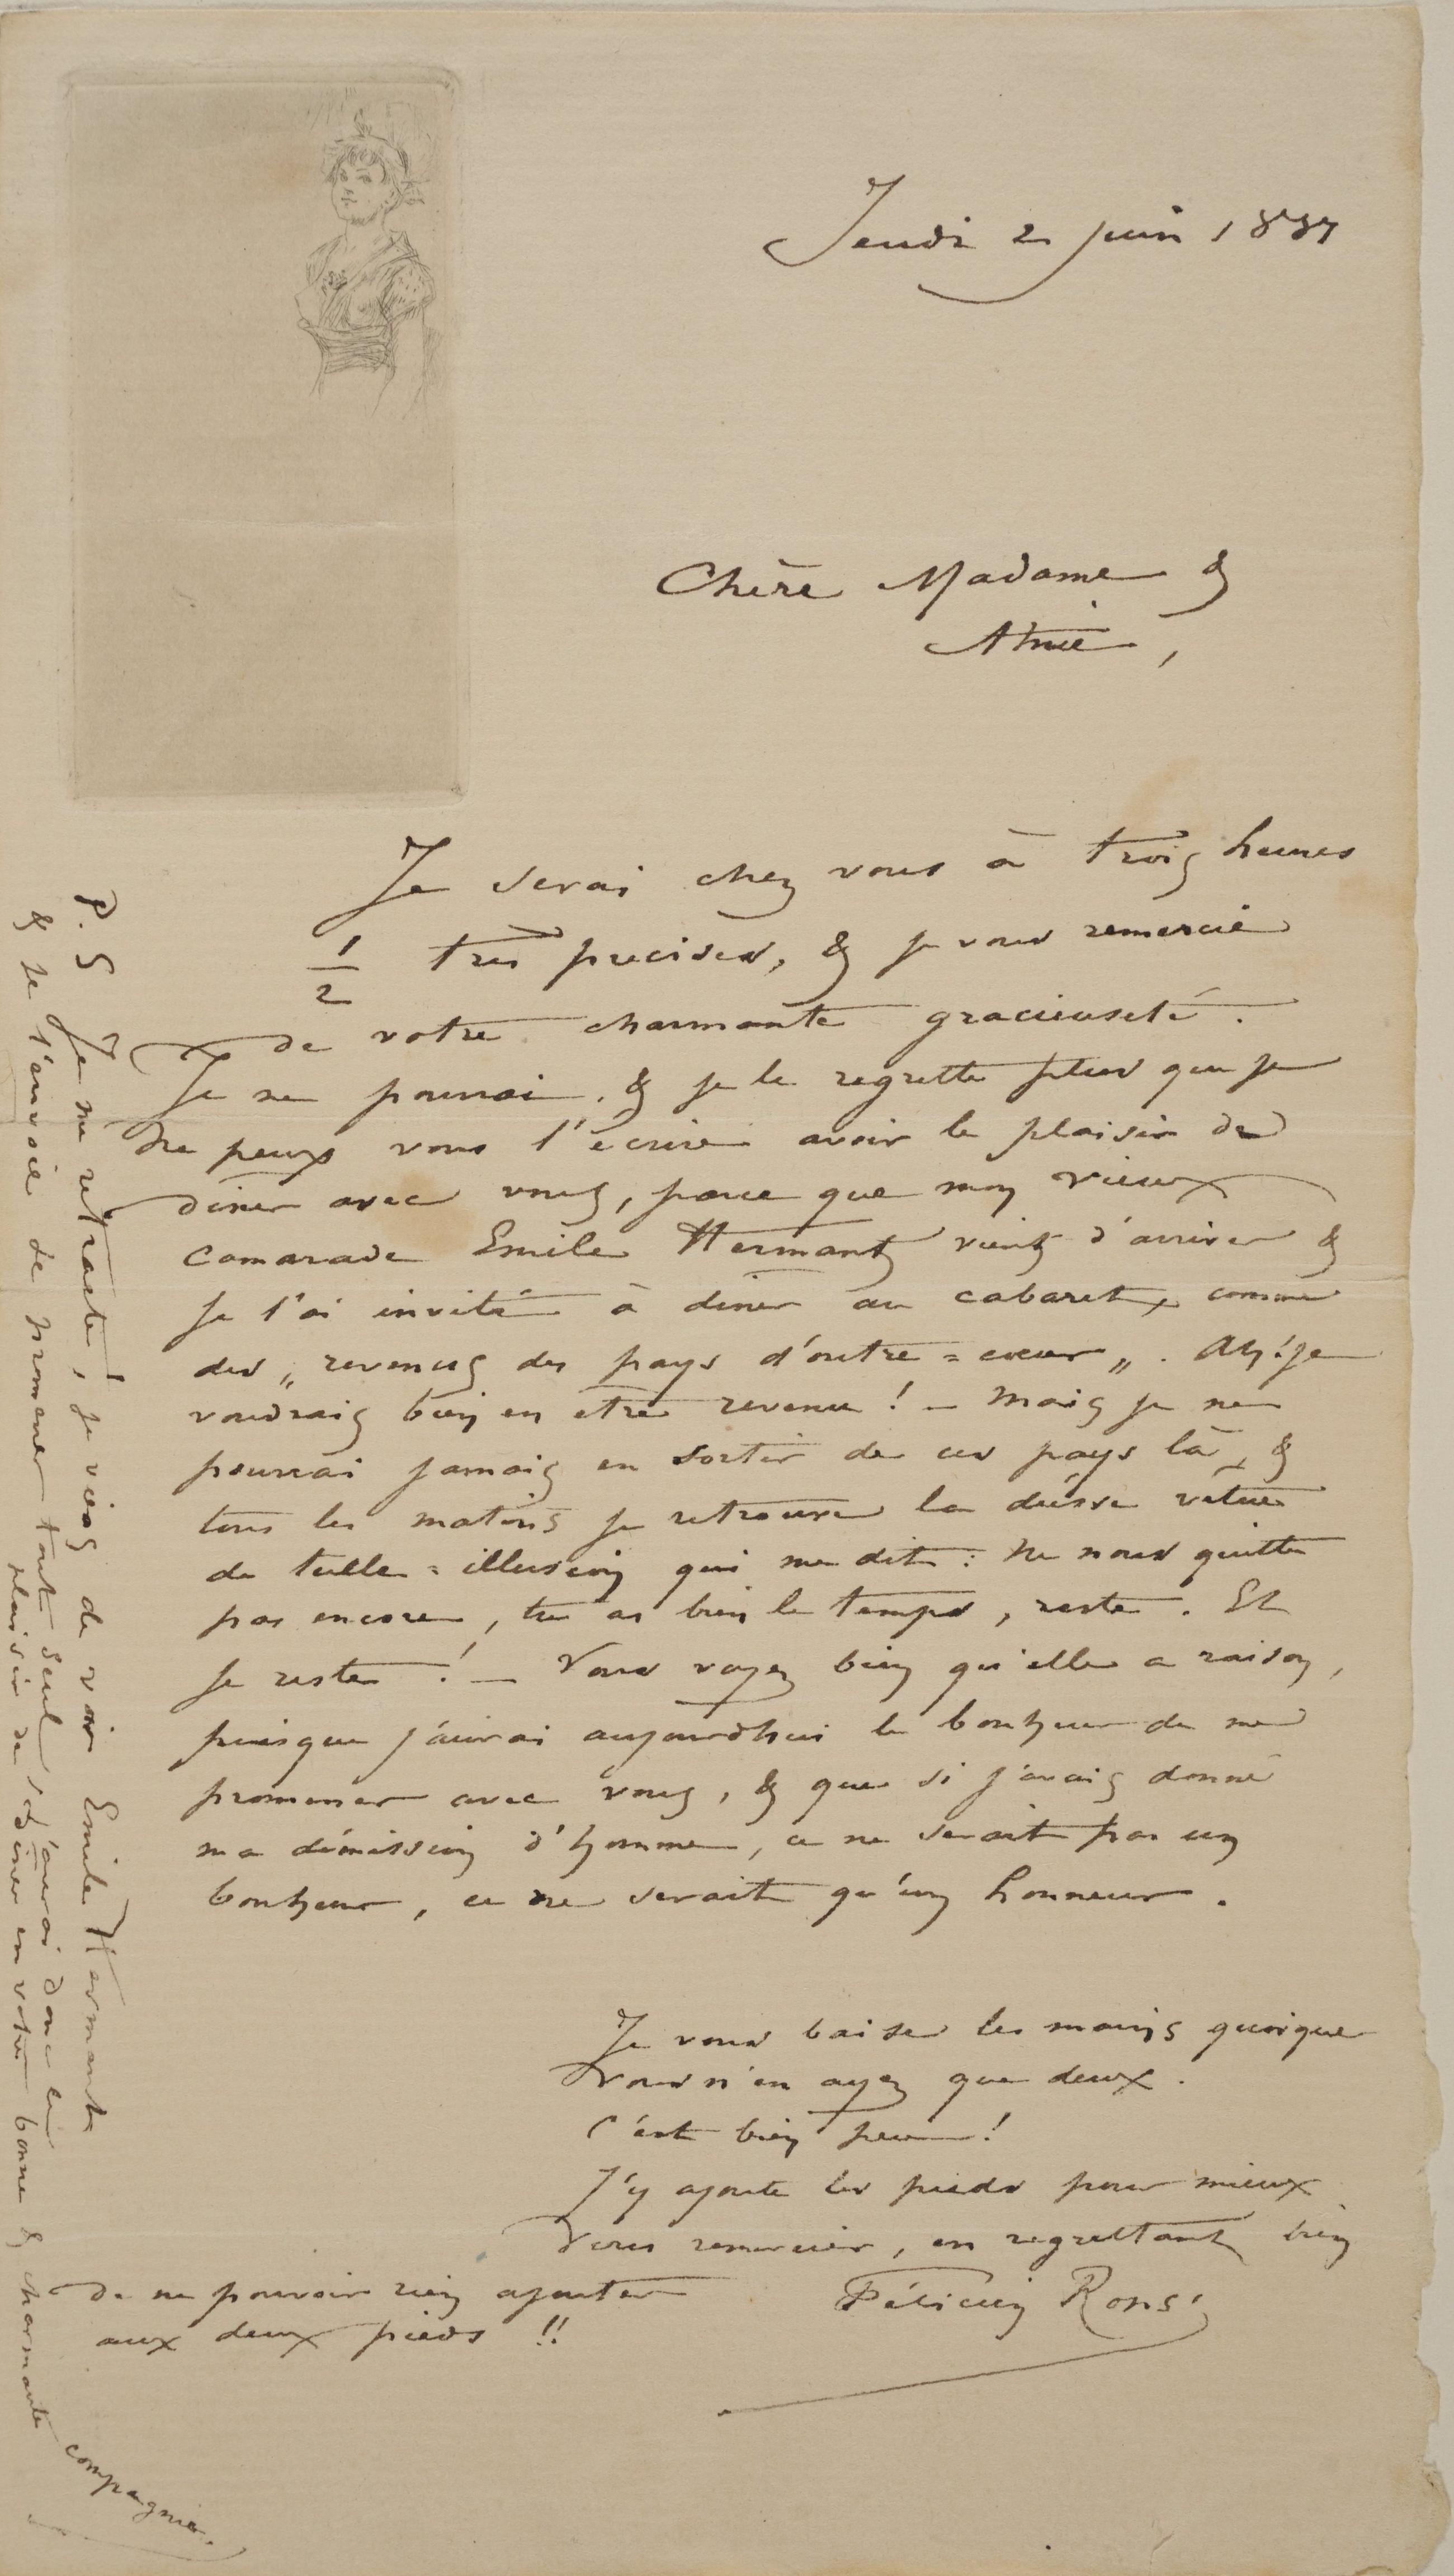 Jeudi 2 juin 1887
Chère Madame &
Amie,
Je serai chez vous à trois heures
1/2 très precises, & je vous remercie
de votre charmante gracieuseté.
Je ne pourrai, & je le regrette plus que je
ne peux vous l'écrire avoir le plaisir de
diner avec vous, parce que mon vieux
camarade Emile Hermant vient d'arriver &
je l'ai invité à diner au cabaret, comme
des „ revenus des pays d'outre=cœur „. Ah! je
voudrais bien en etre revenu ! – Mais je ne
pourrai jamais en sortir de ces pays là, &
tous les matins je retrouve la déesse vêtue
de tulle=illusion qui me dit : Ne nous quitte
pas encore, tu as bien le temps, reste. Et
je reste ! – Vous voyez bien qu'elle a raison,
puisque j'aurai aujourdhui le bonheur de me
promener avec vous, & que si j'avais donné
ma démission d'homme, ce ne serait pas un
bonheur, ce ne serait qu'un honneur.
Je vous baise les mains quoique
vous n'en ayez que deux.
C'est bien peu !
J'y ajoute les pieds pour mieux
vous remercier, en regrettant bien
de ne pouvoir rien ajouter
aux deux pieds !!
Félicien Rops
P.S Je me retracte, je viens de voir Emile Hermant
& je l'envoie se promener tout seul, j'aurai donc le
plaisir de diner en votre bonne & charmante compagnie.